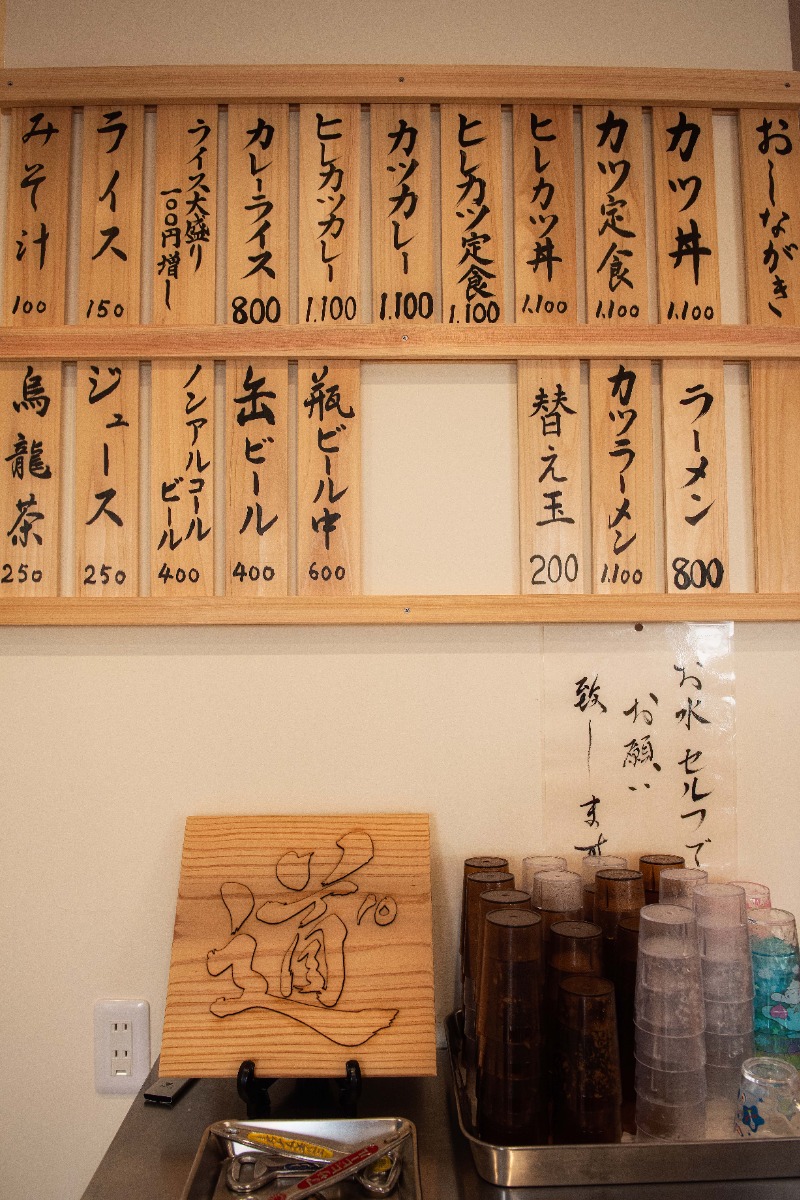 おしながき
カツ丼
1.100
カツ定食
1.100
ヒレカツ丼
1.100
ヒレカツ定食
1.100
カツカレー
1.100
ヒレカツカレー
1.100
カレーライス
800
ライス大盛り
一〇〇円増し
ライス
150
みそ汁
100
ラーメン
800
カツラーメン
1.100
替え玉
200
瓶ビール中
600
缶ビール
400
ノンアルコール
ビール
400
ジュース
250
烏龍茶
250
お水セルフで
お願い
致します
道